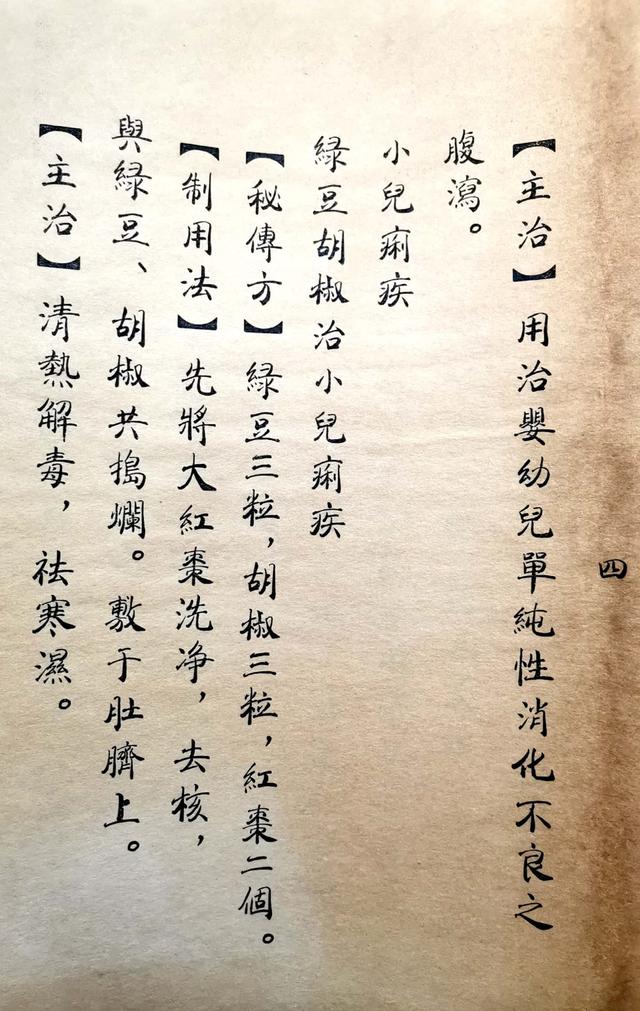 四
【主治】用治嬰幼兒單純性消化不良之
腹瀉。
小兒痢疾
綠豆胡椒治小兒痢疾
【秘傳方】綠豆三粒，胡椒三粒，紅棗二個。
【制用法】先將大紅棗洗净，去核，
與綠豆、胡椒共搗爛。敷于肚臍上。
【主治】清熱解毒，祛寒濕。